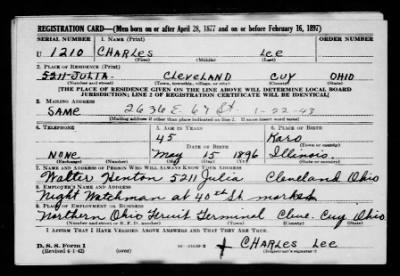 REGISTRATION CARD—(Men born on or after April 28, 1877 and on or before February 16, 1897)
SERIAL NUMBER 1. NAME (Print) ORDER NUMBER
U 1210 CHARLES LEE
2. PLACE OF RESIDENCE (Print)
5211-JULIA. CLEVELAND CUY OHIO
[THE PLACE OF RESIDENCE GIVEN ON THE LINE ABOVE WILL DETERMINE LOCAL BOARD
JURISDICTION; LINE 2 OF REGISTRATION CERTIFICATE WILL BE IDENTICAL]
3. MAILING ADDRESS
SAME 2636 E. 67 St 1-22-43
[Mailing address if other than place indicated on line 2. If same insert word same]
4. TELEPHONE 5. AGE IN YEARS 6. PLACE OF BIRTH
45 Karo
DATE OF BIRTH
NONE May 15 1896 Illinois.
(Exchange) (Number) (Mo.) (Day) (Yr.) (State or country)
7. NAME AND ADDRESS OF PERSON WHO WILL ALWAYS KNOW YOUR ADDRESS
Walter Henton 5211 Julia Cleveland Ohio
8. EMPLOYER'S NAME AND ADDRESS
Night Watchman at 40th St. market
9. PLACE OF EMPLOYMENT OR BUSINESS
Northern Ohio Fruit Terminal Cleve. Cuy Ohio
I AFFIRM THAT I HAVE VERIFIED ABOVE ANSWERS AND THAT THEY ARE TRUE.
D. S. S. Form 1
(Revised 4-1-42) CHARLES LEE
(Registrant's signature)